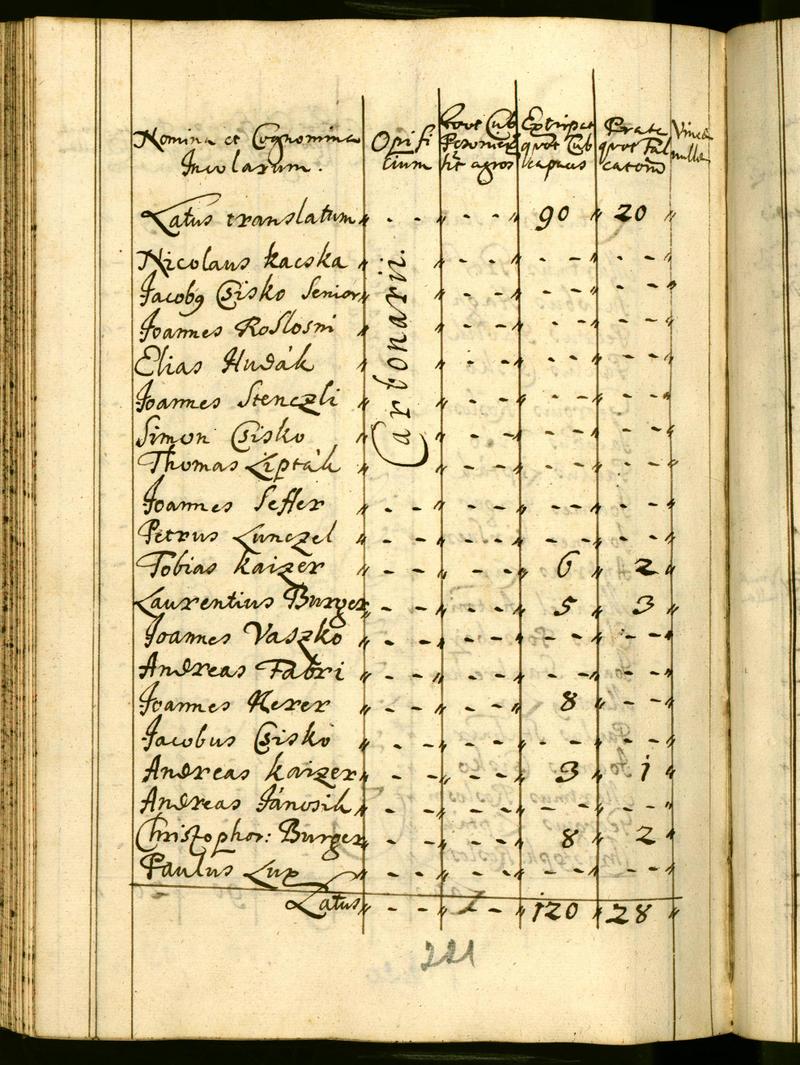 Nomina et Cognomina Incolarum. Opificium quot Cub Extirpat quot Cub capaces Prata quot falcatorū Vinea nulla
Latus translatum „ - - „ - - „ 90 „ 20 „
Nicolaus Kacska „ Carbonarii. „ - - „ - - „ - - „
Jacobg Csisko Senior „ „ - - „ - - „ - - „
Joannes Roslosni „ „ - - „ - - „ - - „
Elias Hudák „ „ - - „ - - „ - - „
Joannes Stenczli „ „ - - „ - - „ - - „
Simon Csisko „ „ - - „ - - „ - - „
Thomas Lipták „ „ - - „ - - „ - - „
Joannes Seffer „ - - „ - - „ - - „ - - „
Petrus Lunczel „ - - „ - - „ - - „ - - „
Tobias Kaizer „ - - „ - - „ 6 „ 2 „
Laurentius Burger „ - - „ - - „ 5 „ 3 „
Joannes Vaszko „ - - „ - - „ - - „ - - „
Andreas Fabri „ - - „ - - „ - - „ - - „
Joannes Kerer „ - - „ - - „ 8 „ - - „
Jacobus Csisko „ - - „ - - „ - - „ - - „
Andreas Kaizer „ - - „ - - „ 3 „ 1 „
Andreas Jánosik „ - - „ - - „ - - „ - - „
Christophor: Burger „ - - „ - - „ 8 „ 2 „
Paulus Lux „ - - „ - - „ - - „ - - „
Latus „ - - „ - - „ 120 „ 28 „
221